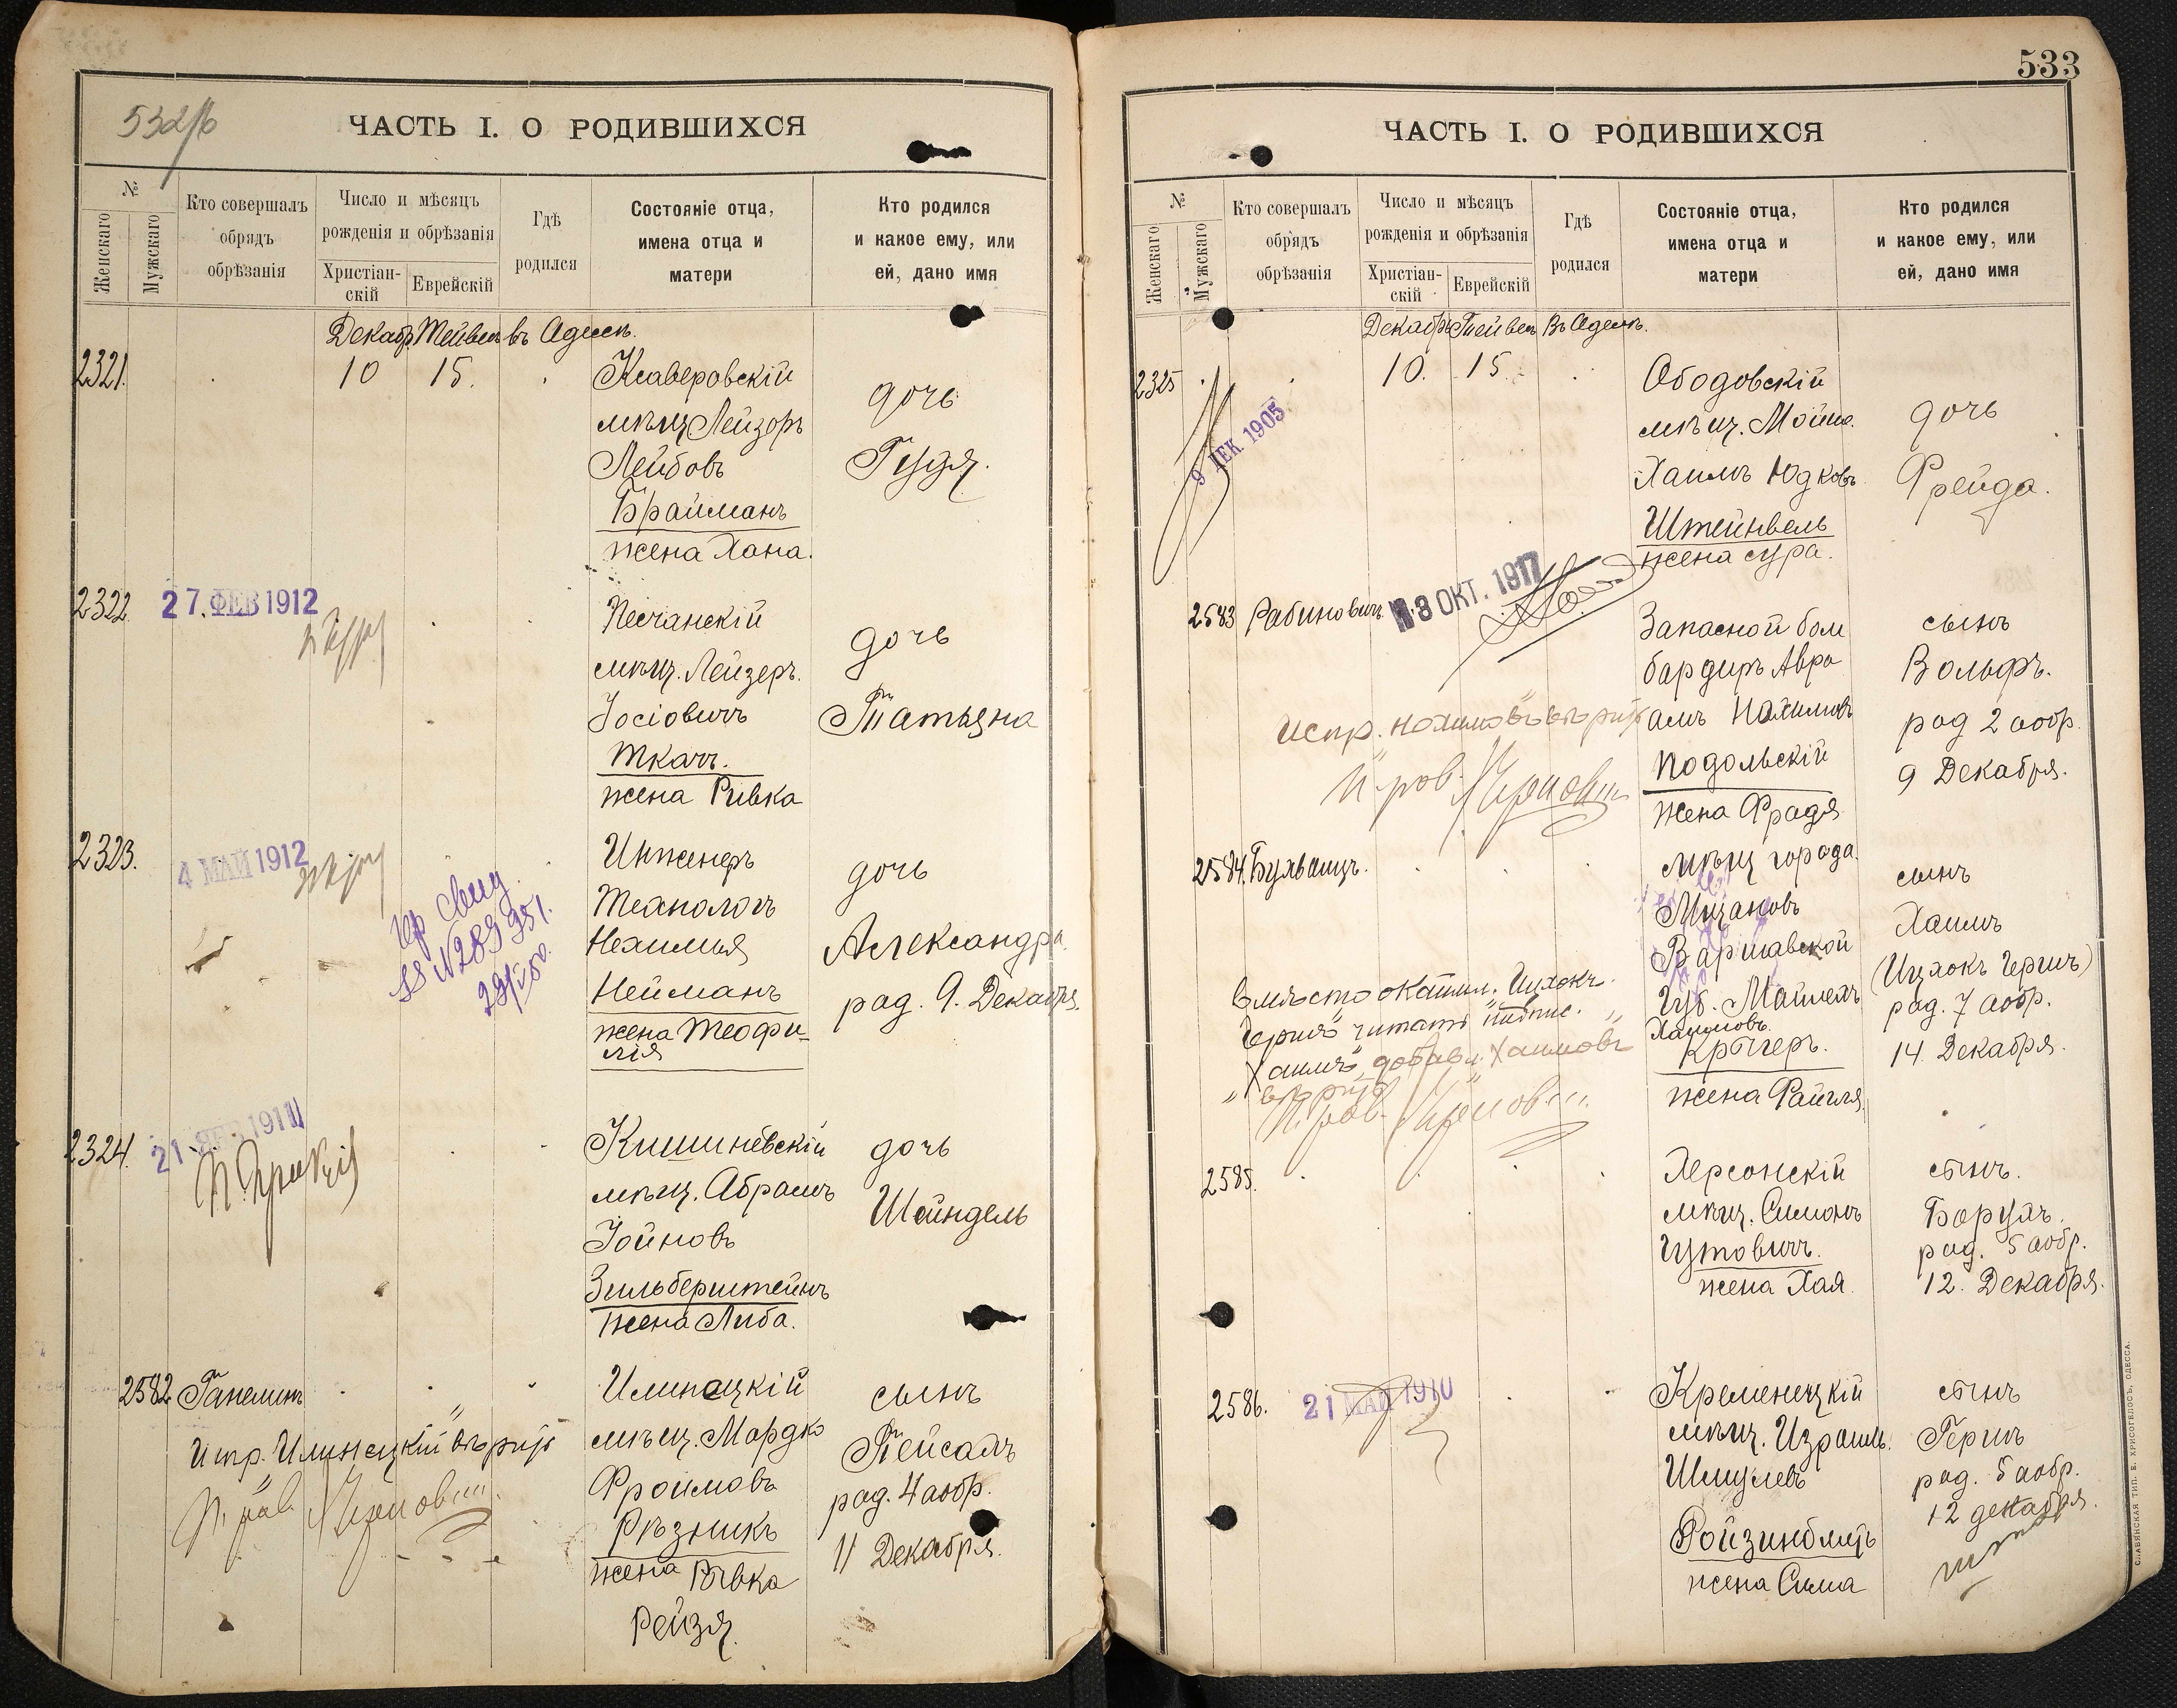 532/б
ЧАСТЬ I. О РОДИВШИХСЯ
№
Женскаго
Мужскаго
Кто совершалъ
обрядъ
обрѣзанія
Число и мѣсяцъ
рожденія и обрѣзанія
Христіан-
скій
Еврейскій
Гдѣ
родился
Состояніе отца,
имена отца и
матери
Кто родился
и какое ему, или
ей, дано имя
Декабр. Тейвес въ Одессѣ.
2321. 10 15.
Ксаверовскій
мѣщ Лейзоръ
Лейбовъ
Брайманъ
жена Хана.
дочь
Гудя.
2322 27. ФЕВ 1912
Песчанскій
мѣщ. Лейзеръ.
Іосіовичъ
Ткачъ.
жена Ривка
дочь
Татьяна
2323. 4 МАЙ 1912
гр свид.
№ 289951.
Инженеръ
Технологъ
Нехимья
Нейманъ
жена Теофи-
лія
дочь
Александра.
род. 9. Декабря.
2324. 21 1911
Кишиневскій
мѣщ. Абрамъ
Іойновъ
Зильберштейнъ
жена Либа.
дочь
Шейндель
2582 Ганелинъ
Испр. Илинецкій вѣрно
Илинецкій
мѣщ. Мордко
Фроимовъ
Рѣзникъ
жена Рывка
Рейзя.
сынъ
Пейсахъ
род. 4 аобр.
11 Декабря.
533
ЧАСТЬ I. О РОДИВШИХСЯ
№
Женскаго
Мужскаго
Кто совершалъ
обрядъ
обрѣзанія
Число и мѣсяцъ
рожденія и обрѣзанія
Христіан-
скій
Еврейскій
Гдѣ
родился
Состояніе отца,
имена отца и
матери
Кто родился
и какое ему, или
ей, дано имя
Декабр. Тейвес Въ Одессѣ.
2325 10. 15.
9 ДЕК. 1905
Ободовскій
мѣщ. Мойше.
Хаимъ Юдковъ
Штейнвель
жена сура.
дочь
Фрейда.
2583 Рабиновичъ 3 ОКТ. 1917
Запасной бом
бардиръ Авра
амъ Нахимовъ
Подольскій
жена Фрадя
сынъ
Вольфъ.
род 2 аобр.
9 Декабря.
Испр. Нахимовъ
2584. Бухвалцъ.
мѣщ города.
Варшавской
Губ. Майлехъ
Хаимовъ.
Крыгеръ.
жена Файгля.
сынъ
Хаимъ
(Ицхокъ Гершъ)
род. 7 аобр.
14. Декабря.
вмѣсто Ицхокъ.
Гершъ читать
Хаимъ, добавл. Хаимовъ
2585.
Херсонскій
мѣщ. Симонъ
Гутовичъ.
жена Хая.
сынъ.
Борухъ.
род. 5 аобр.
12. Декабря.
2586. 21 МАЙ 1910
Кременецкій
мѣщ. Израиль.
Шмулевъ
Ройзинблитъ
жена Сима
сынъ
Гершъ
род. 5 аобр.
12 декабря.
СЛАВЯНСКАЯ ТИП. Е. ХРИСОГЕЛОСЪ, ОДЕССА.